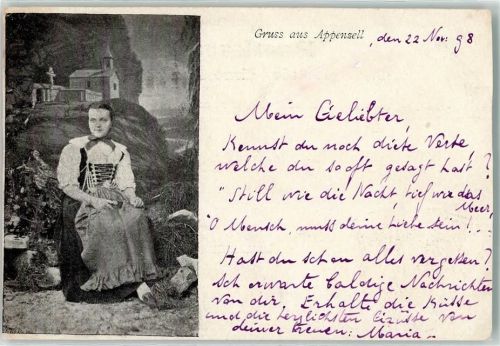 Gruss aus Appenzell, den 22 Nov. 98
Mein Geliebter,
Kennst du noch diese Verse,
welche du so oft gesagt hast?
"Still wie die Nacht, tief wie das
Meer,
O Mensch, muss deine Liebe sein!...
Hast du schon alles vergessen?
Ich erwarte baldige Nachrichten
von dir. Erhalte die Küsse
und die herzlichsten Grüsse von
deiner treuen: Maria.